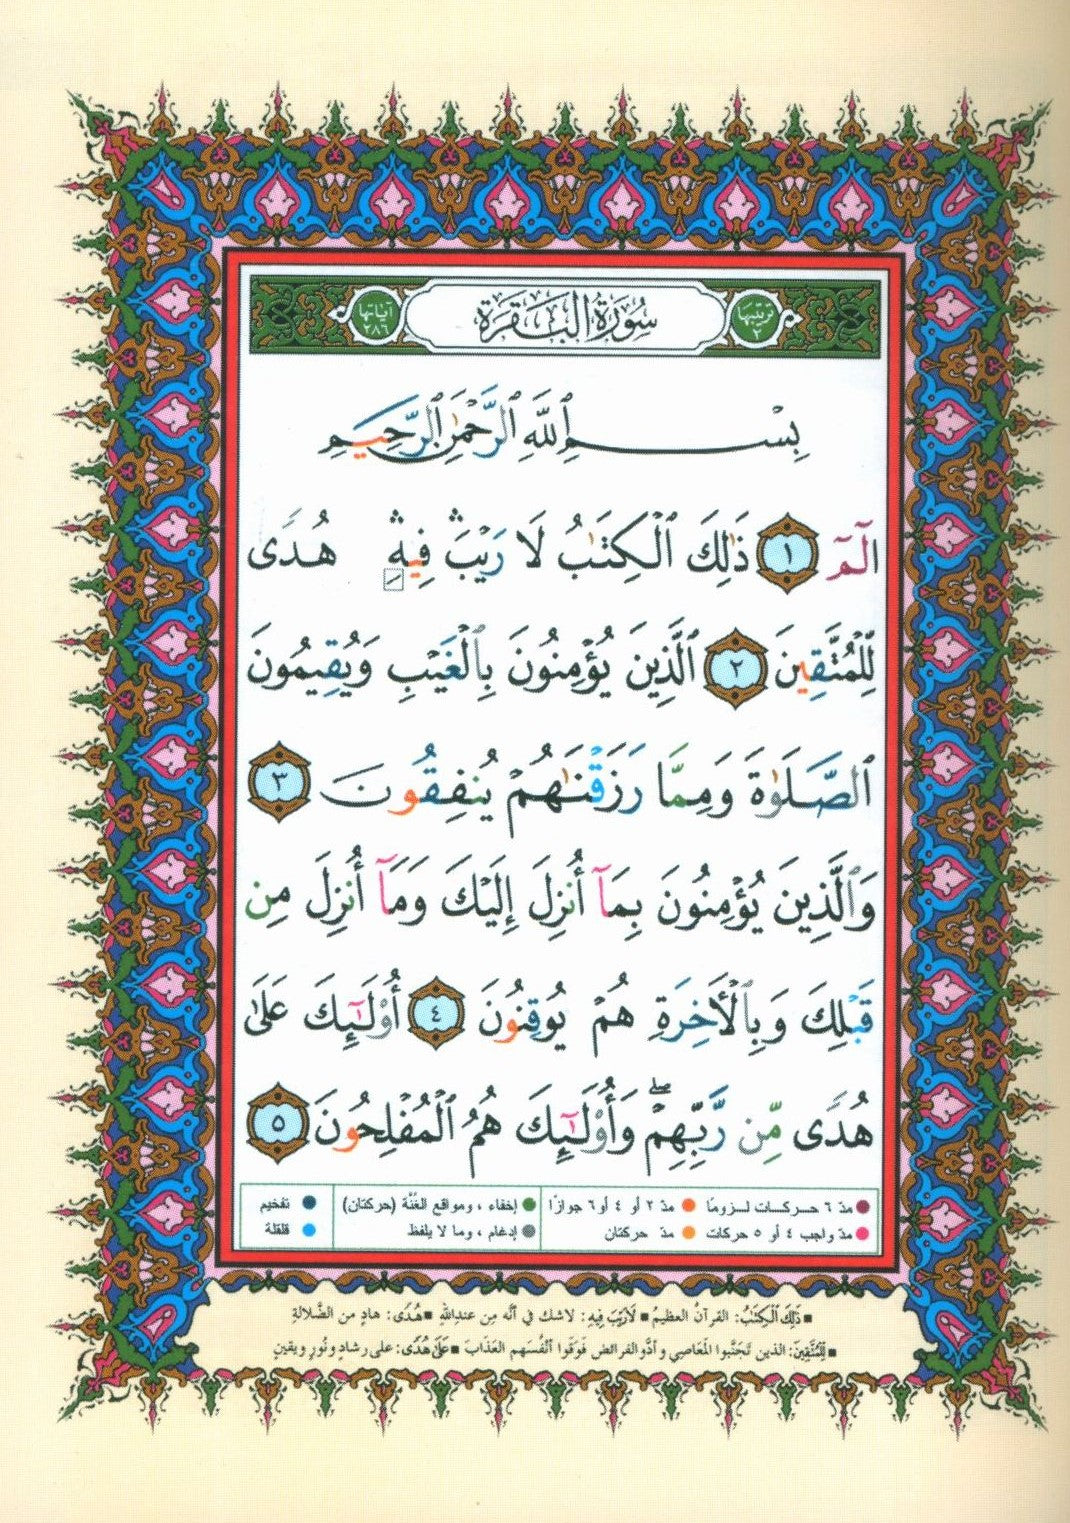 ترتيبها ٢ سُورَةُ البَقَرَةِ آياتها ٢٨٦
بِسْمِ ٱللَّهِ ٱلرَّحْمَٰنِ ٱلرَّحِيمِ
الٓمٓ ١ ذَٰلِكَ ٱلْكِتَٰبُ لَا رَيْبَ ۛ فِيهِ ۛ هُدًى
لِّلْمُتَّقِينَ ٢ ٱلَّذِينَ يُؤْمِنُونَ بِٱلْغَيْبِ وَيُقِيمُونَ
ٱلصَّلَوٰةَ وَمِمَّا رَزَقْنَٰهُمْ يُنفِقُونَ ٣
وَٱلَّذِينَ يُؤْمِنُونَ بِمَآ أُنزِلَ إِلَيْكَ وَمَآ أُنزِلَ مِن
قَبْلِكَ وَبِٱلْأَخِرَةِ هُمْ يُوقِنُونَ ٤ أُو۟لَٰٓئِكَ عَلَىٰ
هُدًى مِّن رَّبِّهِمْ ۖ وَأُو۟لَٰٓئِكَ هُمُ ٱلْمُفْلِحُونَ ٥
● مدّ ٦ حركات لزومًا ● مدّ ٢ أو ٤ أو ٦ جوازًا ● إخفاء ، ومواقع الغُنَّة (حركتان) ● تفخيم
● مدّ واجب ٤ أو ٥ حركات ● مدّ حركتان ● إدغام ، وما لا يلفظ ● قلقلة
■ ذَٰلِكَ ٱلْكِتَٰبُ: القرآنُ العظيمُ ■ لَا رَيْبَ فِيهِ: لا شك في أنّه مِن عندِ اللهِ ■ هُدًى: هادٍ من الضّلالةِ
■ لِّلْمُتَّقِينَ: الذين تَجَنَّبوا المَعَاصِي و أدَّوا الفرائضَ فَوَقَوا أنْفُسَهم العَذَابَ ■ عَلَىٰ هُدًى: على رشادٍ ونُورٍ ويَقينٍ